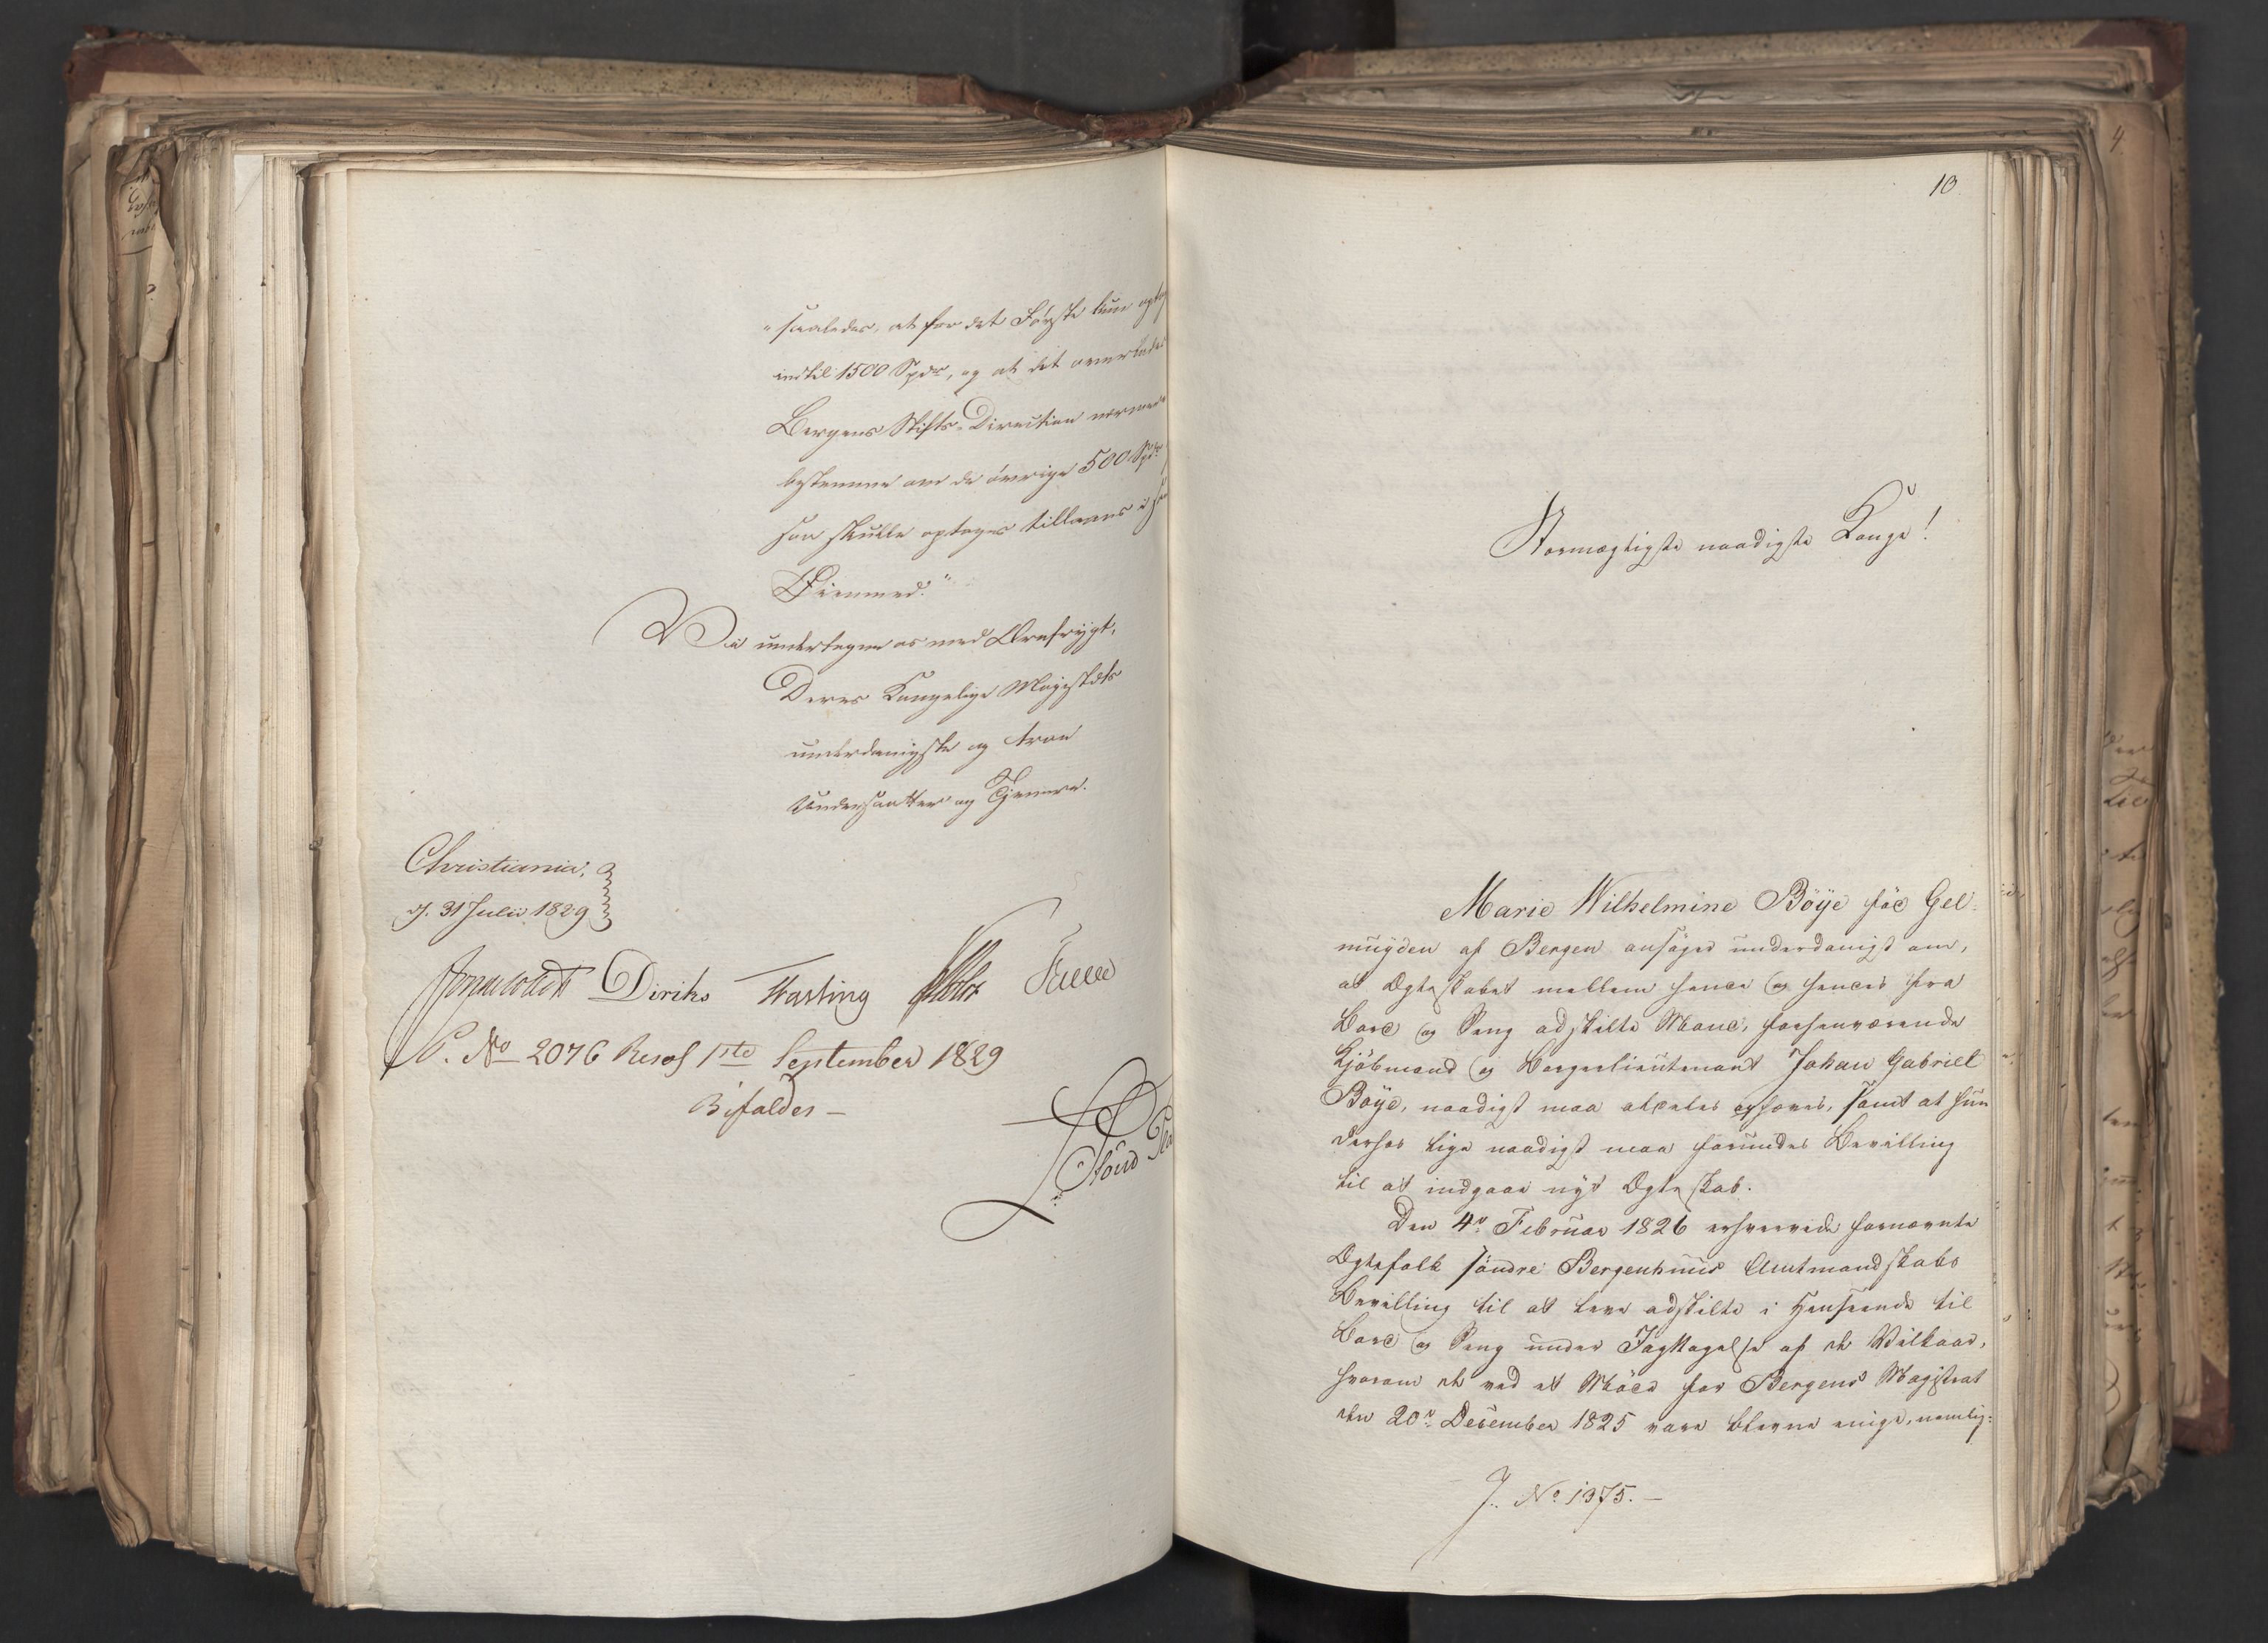 "saaledes, at for det Første kun optag
indtil 1500 Spdr, og at det overlades
Bergens Stifts-Direction nærmere
bestemme om de øvrige 500 Spdr
son skulle optages tillaans i
Øiemed."
Vi undertegne os med Ærefrygt,
Deres Kongelige Majestæts
underdanigste og troe
Undersaatter og Tjenere.
Christiania,
d. 31 Julii 1829
Diriks Vasting
P. No 2076 Resol 1ste September 1829
Bifaldes –
10.
Stormægtigste naadigste Konge!
Marie Wilhelmine Böÿe föd Gel
muÿden af Bergen ansøger underdanigst om,
at Ægteskabet mellem hende og hendes fra
Bord og Seng adskilte Mand, forhenværende
Kjöbmand og Borgerlieutenant Johan Gabriel
Böÿe, naadigst maa aldeles ophæves, samt at hun
derhos lige naadigst maa forundes Bevilling
til at indgaae nyt Ægteskab.
Den 4de Februar 1826 erhvervede fornævnte
Ægtefolk söndre Bergenhuus Amtmandskabs
Bevilling til at leve adskilte i Henseende til
Bord og Seng under Iagttagelse af de Vilkaar,
hvorom de ved et Möde for Bergens Magistrat
den 20de December 1825 vare blevne enige, nemlig:
J. No 1375. –